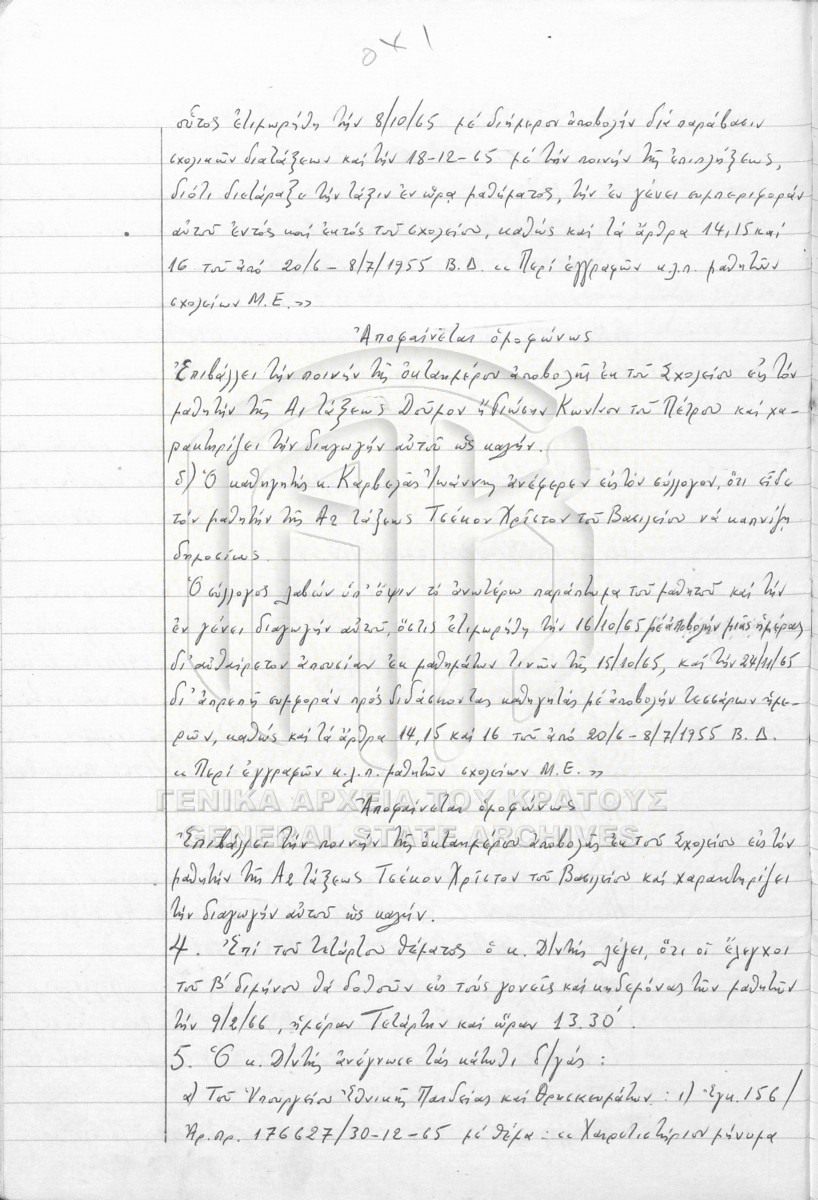 οὗτος ἐτιμωρήθη τήν 8/10/65 μέ διήμερον ἀποβολήν διά παράβασιν
σχολικῶν διατάξεων καί τήν 18-12-65 μέ τήν ποινήν τῆς ἐπιπλήξεως,
διότι διετάραξε τήν τάξιν ἐν ὥρᾳ μαθήματος, τήν ἐν γένει συμπεριφοράν
αὐτοῦ ἐντός καί ἐκτός τοῦ σχολείου, καθώς καί τά ἄρθρα 14, 15 καί
16 τοῦ ἀπό 20/6 - 8/7/1955 Β.Δ. «Περί ἐγγραφῶν κ.λ.π. μαθητῶν
σχολείων Μ.Ε.»
Ἀποφαίνεται ὁμοφώνως
Ἐπιβάλλει τήν ποινήν τῆς ὀκταημέρου ἀποβολῆς ἐκ τοῦ Σχολείου εἰς τόν
μαθητήν τῆς Α1 τάξεως Κων/νον τοῦ Πέτρου καί χα-
ρακτηρίζει τήν διαγωγήν αὐτοῦ ὡς καλήν.
δ) Ὁ καθηγητής κ. Καρβελᾶς Ἰωάννης ἀνέφερεν εἰς τόν σύλλογον, ὅτι εἶδε
τόν μαθητήν τῆς Α2 τάξεως Τσέκον Χρῆστον τοῦ Βασιλείου νά καπνίζῃ
δημοσίως.
Ὁ σύλλογος λαβών ὑπ' ὄψιν τό ἀνωτέρω παράπτωμα τοῦ μαθητοῦ καί τήν
ἐν γένει διαγωγήν αὐτοῦ, ὅστις ἐτιμωρήθη τήν 16/10/65 μέ ἀποβολήν μιᾶς ἡμέρας
δι' αὐθαίρετον ἀπουσίαν ἐκ μαθημάτων τινῶν τῆς 15/10/65, καί τήν 24/11/65
δι' ἀπρεπῆ συμφοράν πρός διδάσκοντας καθηγητάς μέ ἀποβολήν τεσσάρων ἡμε-
ρῶν, καθώς καί τά ἄρθρα 14, 15 καί 16 τοῦ ἀπό 20/6 - 8/7/1955 Β.Δ.
«Περί ἐγγραφῶν κ.λ.π. μαθητῶν σχολείων Μ.Ε.»
ΓΕΝΙΚΑ ΑΡΧΕΙΑ ΤΟΥ ΚΡΑΤΟΥΣ
Ἀποφαίνεται ὁμοφώνως
GENERAL STATE ARCHIVES
Ἐπιβάλλει τήν ποινήν τῆς ὀκταημέρου ἀποβολῆς ἐκ τοῦ Σχολείου εἰς τόν
μαθητήν τῆς Α2 τάξεως Τσέκον Χρῆστον τοῦ Βασιλείου καί χαρακτηρίζει
τήν διαγωγήν αὐτοῦ ὡς καλήν.
4. Ἐπί τοῦ τετάρτου θέματος ὁ κ. Δ/ντής λέγει, ὅτι οἱ ἔλεγχοι
τοῦ Β' διμήνου θά δοθοῦν εἰς τούς γονεῖς καί κηδεμόνας τῶν μαθητῶν
τήν 9/2/66, ἡμέραν Τετάρτην καί ὥραν 13.30'.
5. Ὁ κ. Δ/ντής ἀνέγνωσε τάς κάτωθι δ/γάς :
α) Τοῦ Ὑπουργείου Ἐθνικῆς Παιδείας καί Θρησκευμάτων : 1) Ἐγκ. 156/
Ἀρ. πρ. 176627/30-12-65 μέ θέμα : «Χαιρετιστήριον μήνυμα